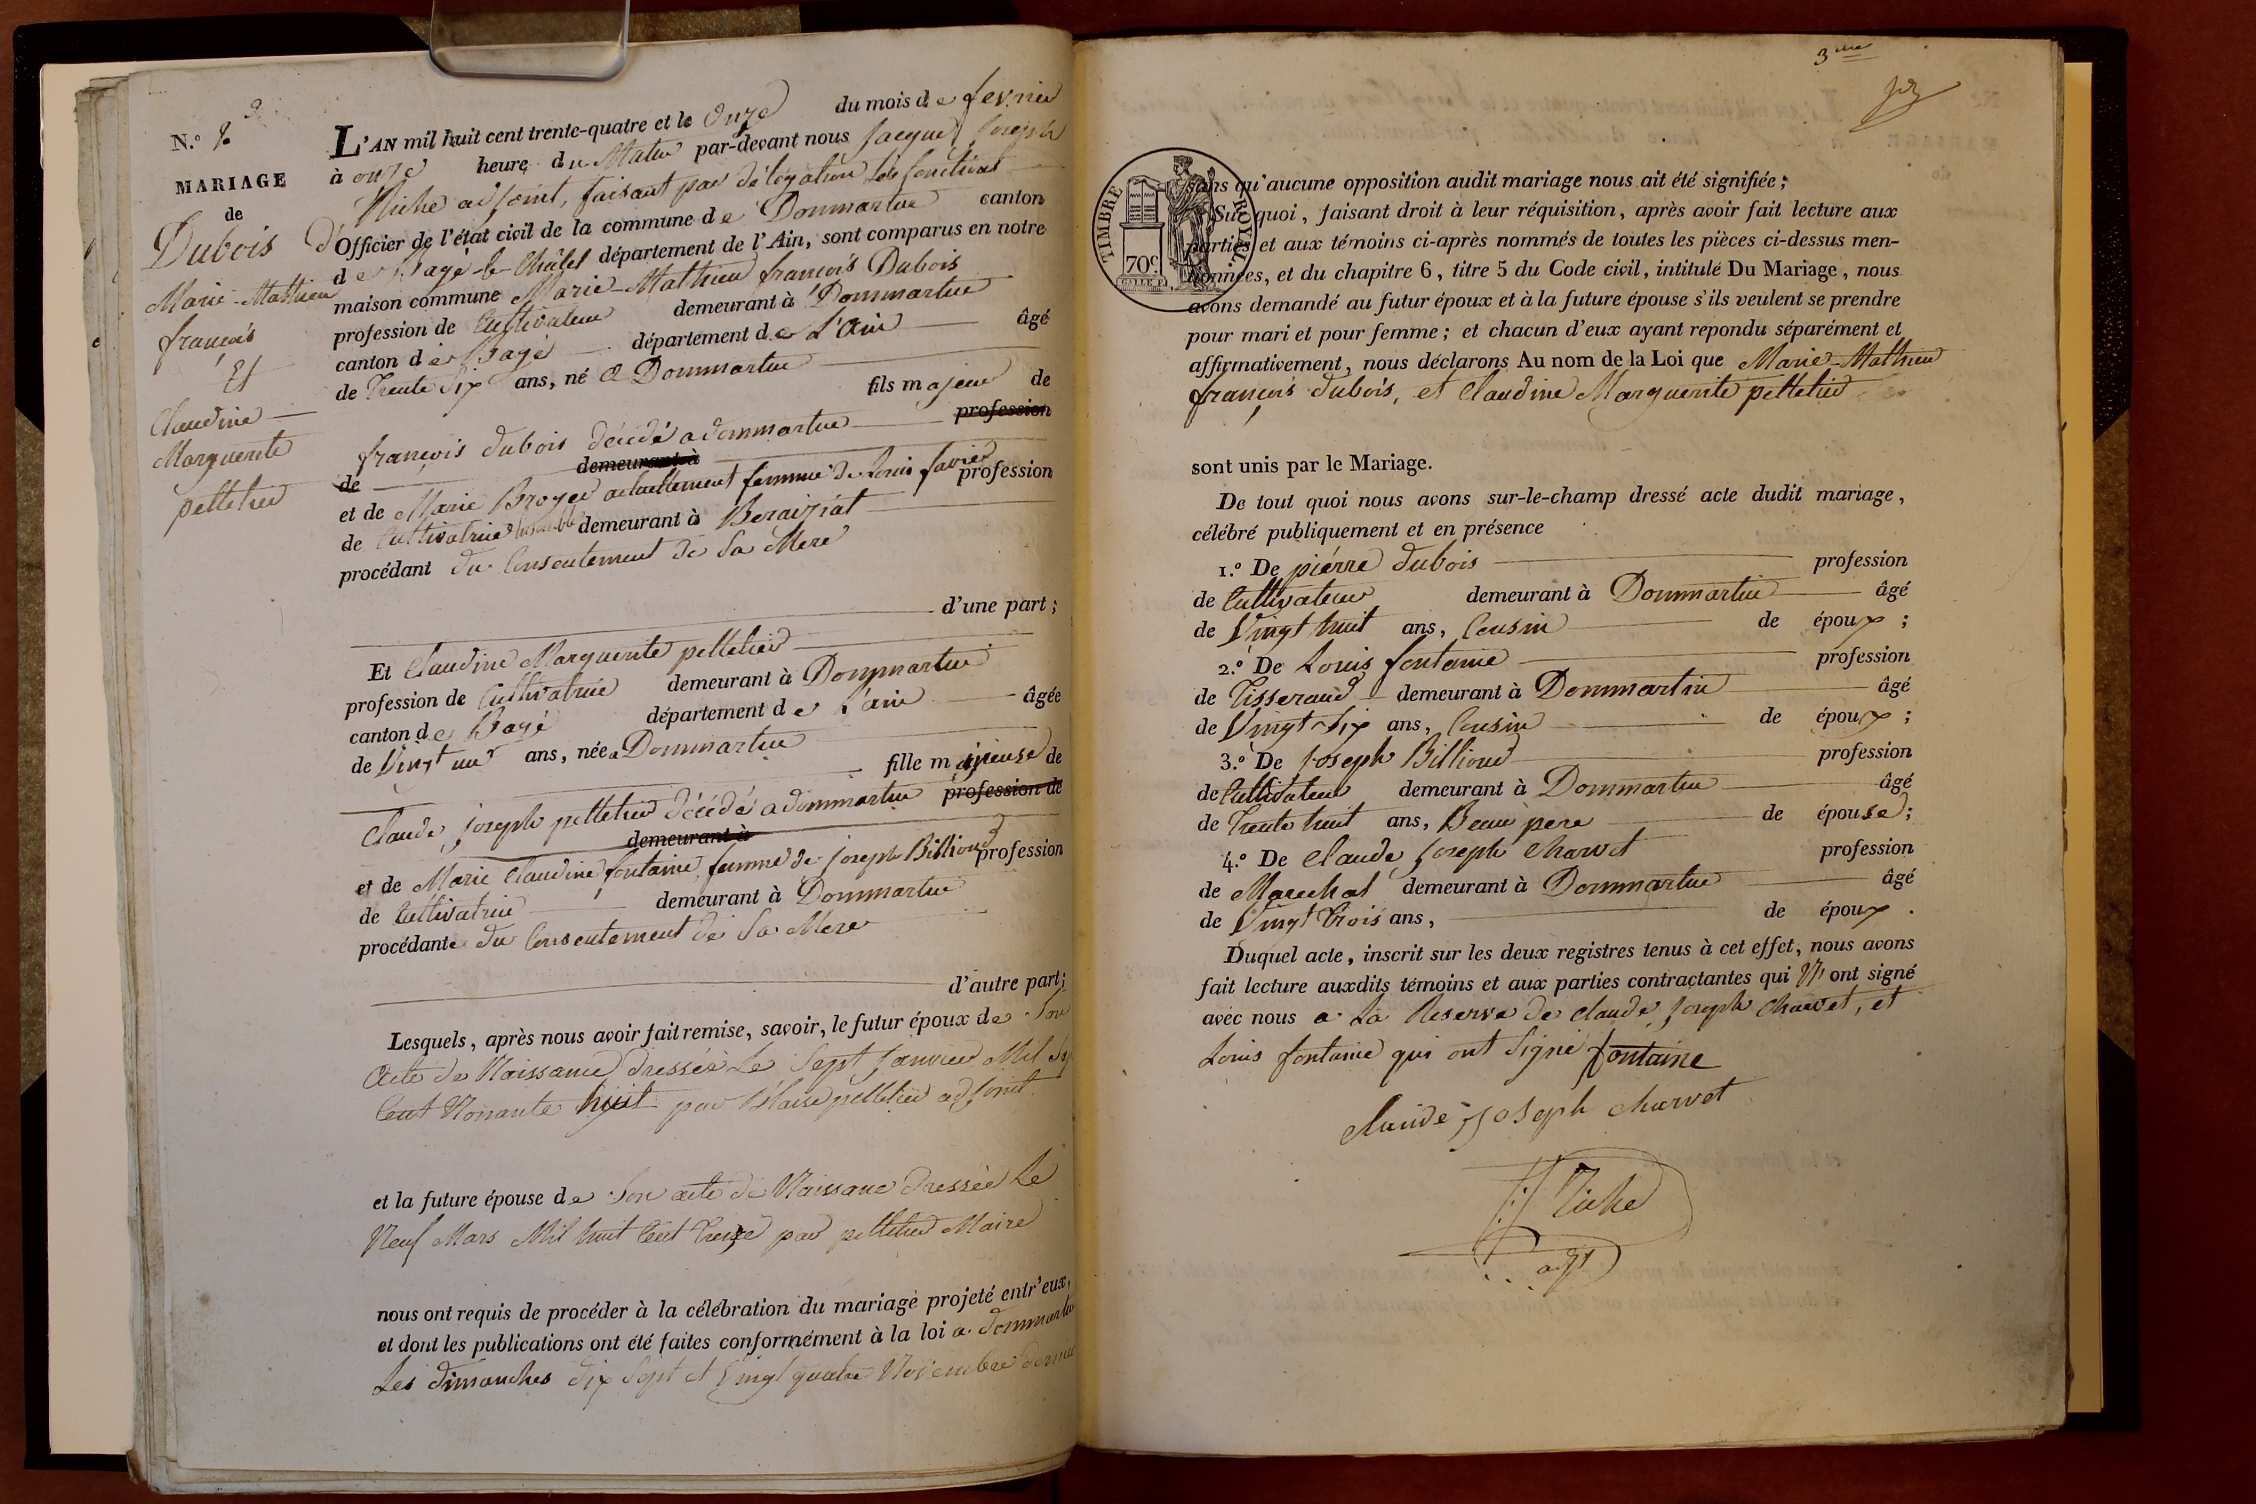 N.º
MARIAGE
de
Dubois
Marie-Mathieu
françois
Et
Claudine
Marguerite
pelletier
L'AN mil huit cent trente-quatre et le Onze du mois de fevrier
à onze heure du Matin par-devant nous Jacques Joseph
adjoint, faisant par délégation les fonctions
d'Officier de l'état civil de la commune de Dommartin canton
de Bagé-le-Châtel département de l'Ain, sont comparus en notre
maison commune Marie-Mathieu françois Dubois
profession de Cultivateur demeurant à Dommartin
canton de Bagé département de L'Ain âgé
de Trente Six ans, né a Dommartin
fils majeur de
françois dubois décédé a dommartin profession
de demeurant à
et de Marie Broyer actuellement femme de Louis favier profession
de Cultivatrice ensemble demeurant à Beraiziat
procédant du Consentement de Sa Mere
d'une part ;
Et Claudine Marguerite pelletier
profession de Cultivatrice demeurant à Dommartin
canton de Bagé département de L'ain âgée
de Vingt un ans, née a Dommartin
fille majeuse de
Claude Joseph pelletier décédé a dommartin profession de
demeurant à
et de Marie Claudine fontaine femme de Joseph Billioud profession
de Cultivatrice demeurant à Dommartin
procédante du Consentement de Sa Mere
d'autre part ;
Lesquels, après nous avoir fait remise, savoir, le futur époux de Son
Acte de Naissance dressée Le Sept Janvier Mil Sept
Cent Nonante huit par Blaise pelletier adjoint
et la future épouse de Son acte de Naissance dressée Le
Neuf Mars Mil huit Cent treize par pelletier Maire
nous ont requis de procéder à la célébration du mariage projeté entr'eux,
et dont les publications ont été faites conformément à la loi a dommartin
Les dimanches dix Sept et Vingt quatre Novembre dernier
3me
TIMBRE ROYAL
70c.
sans qu'aucune opposition audit mariage nous ait été signifiée ;
Sur quoi, faisant droit à leur réquisition, après avoir fait lecture aux
parties et aux témoins ci-après nommés de toutes les pièces ci-dessus men-
tionnées, et du chapitre 6, titre 5 du Code civil, intitulé Du Mariage, nous
avons demandé au futur époux et à la future épouse s'ils veulent se prendre
pour mari et pour femme ; et chacun d'eux ayant repondu séparément et
affirmativement, nous déclarons Au nom de la Loi que Marie-Mathieu
françois dubois, et Claudine Marguerite pelletier
sont unis par le Mariage.
De tout quoi nous avons sur-le-champ dressé acte dudit mariage,
célébré publiquement et en présence
1.º De piérre dubois profession
de Cultivateur demeurant à Dommartin âgé
de Vingt huit ans, Cousin de époux ;
2.º De Louis fontaine profession
de Tisserand demeurant à Dommartin âgé
de Vingt-Six ans, Cousin de époux ;
3.º De Joseph Billioud profession
de Cultivateur demeurant à Dommartin âgé
de Trente huit ans, Beau pere de épouse ;
4.º De Claude Joseph Charvet profession
de Marechal demeurant à Dommartin âgé
de Vingt trois ans, de époux .
Duquel acte, inscrit sur les deux registres tenus à cet effet, nous avons
fait lecture auxdits témoins et aux parties contractantes qui N'ont signé
avec nous a La Reserve de Claude Joseph Charvet, et
Louis fontaine qui ont Signé fontaine
Claude joseph charvet